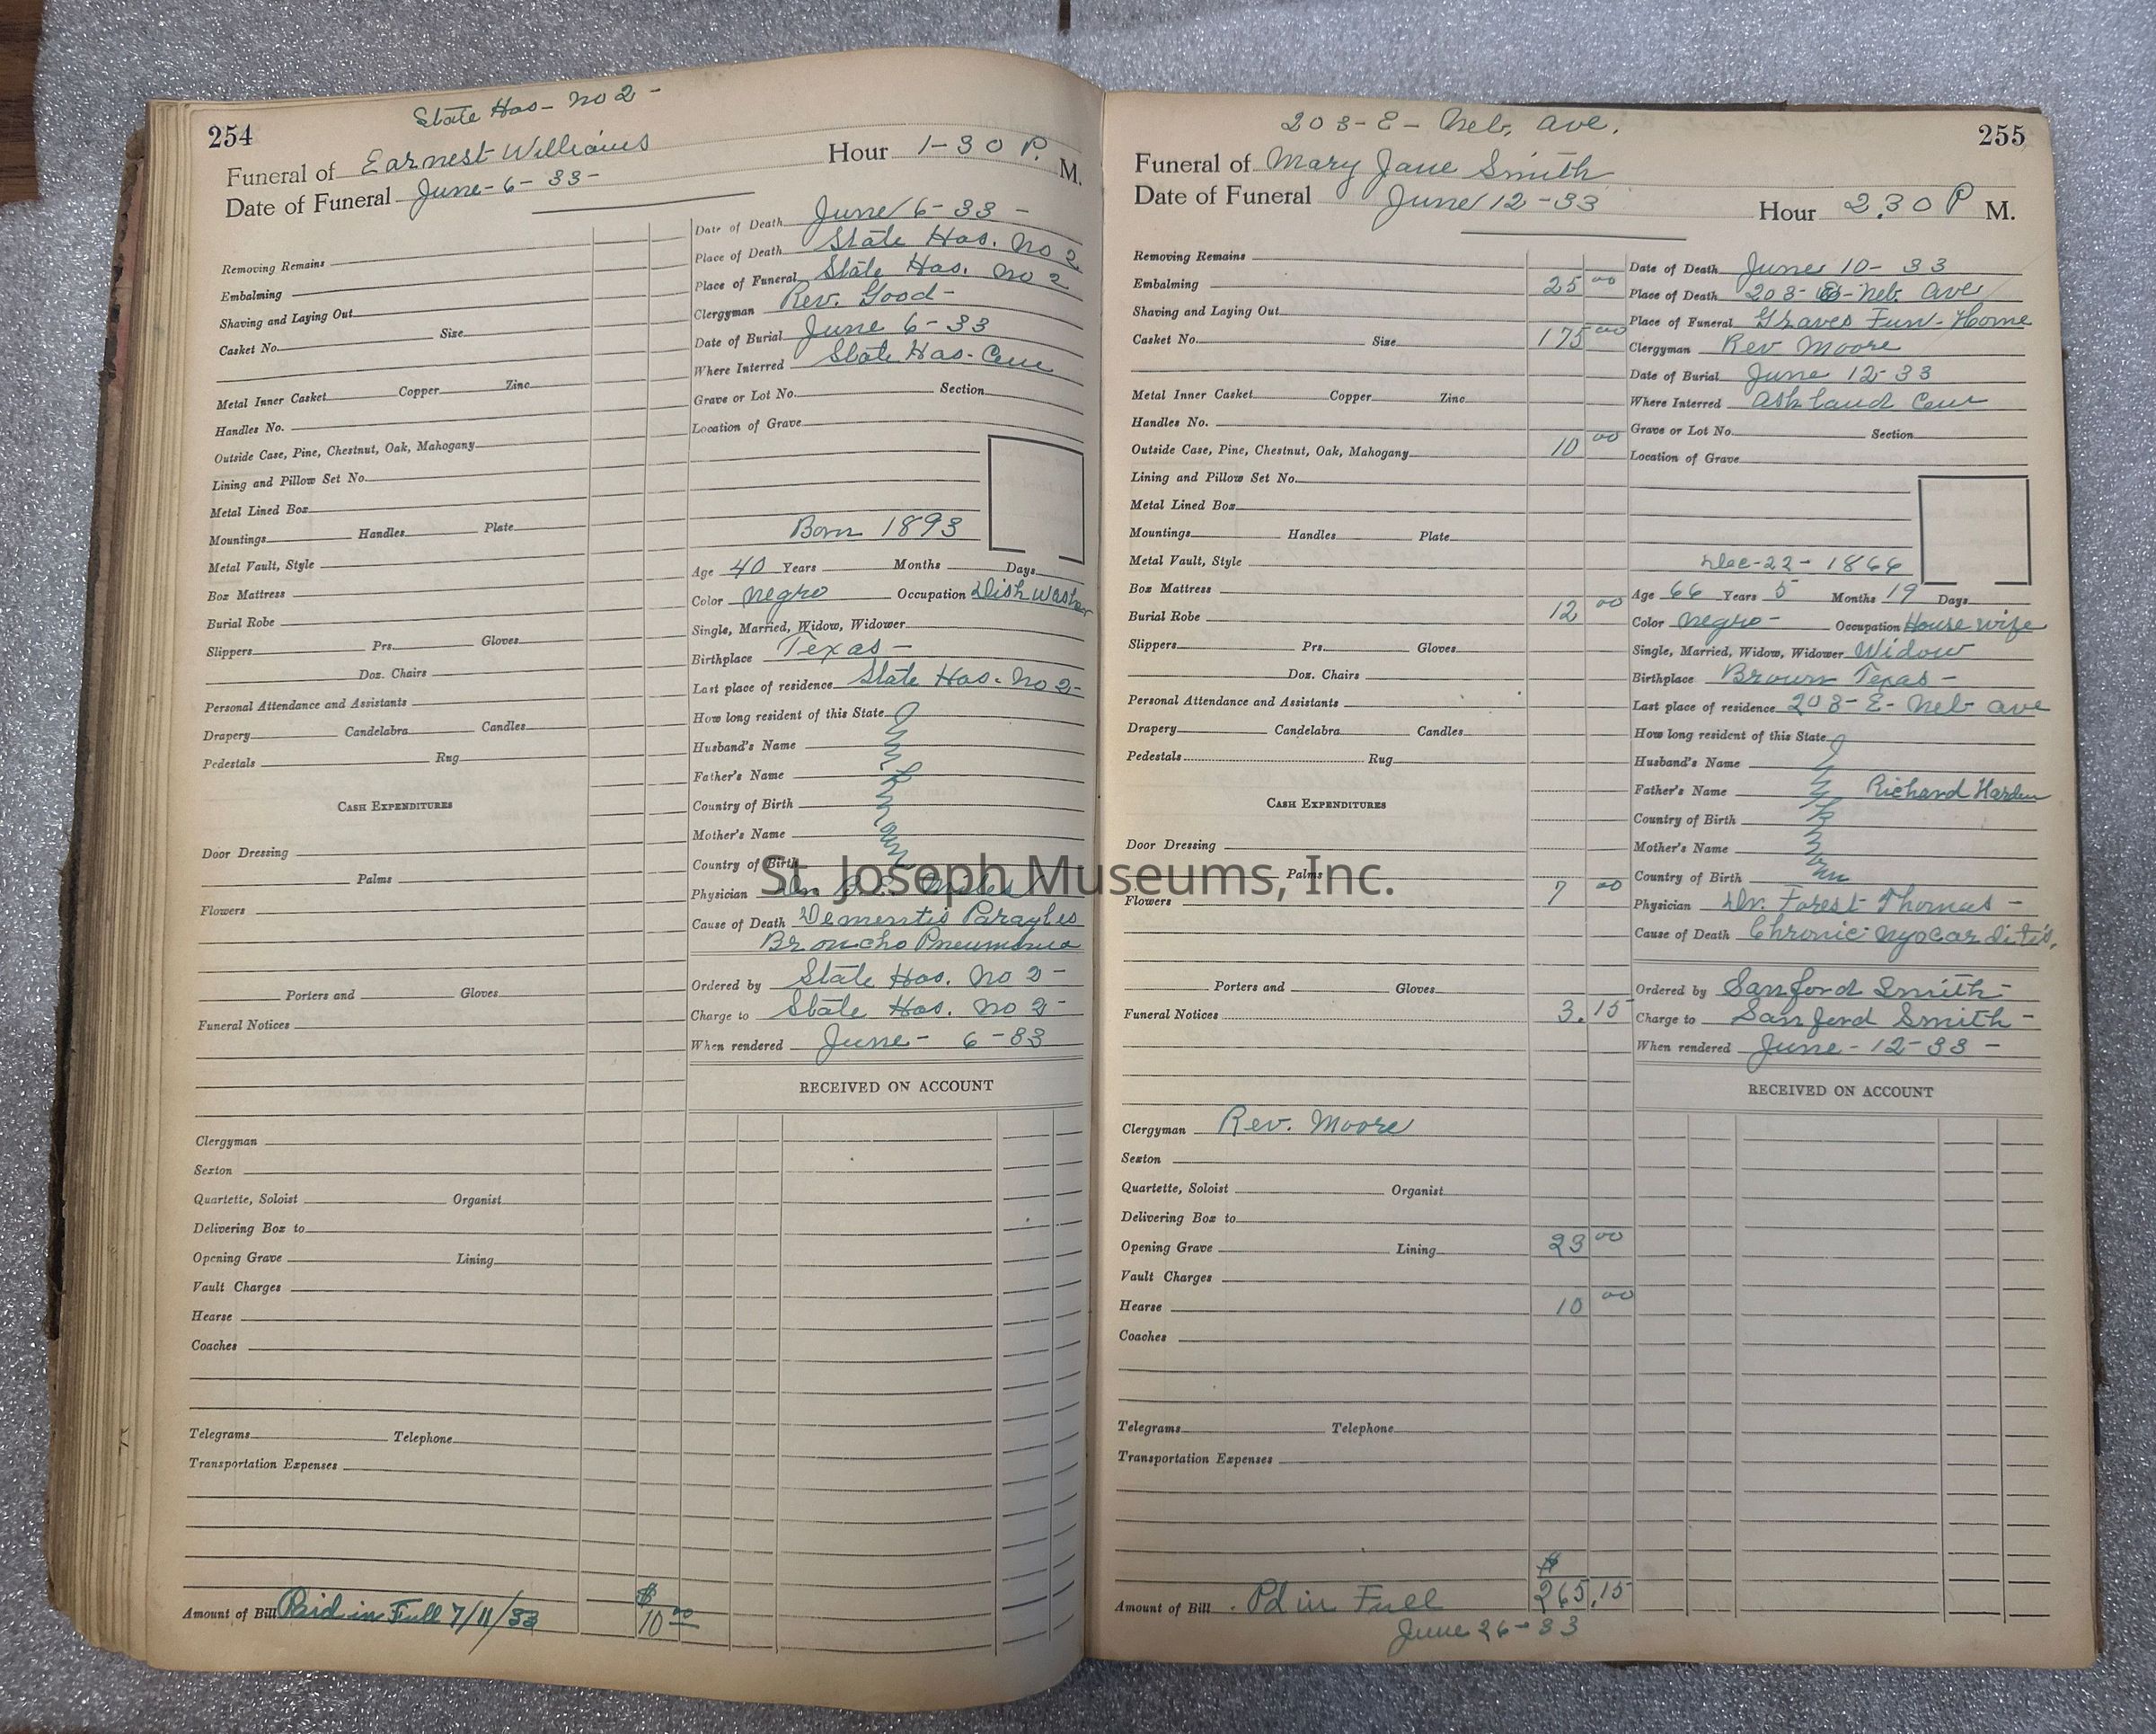 State Hos- No 2-
254
Funeral of Earnest Williams Hour 1-30 P. M.
Date of Funeral June-6-33-
Removing Remains
Embalming
Shaving and Laying Out
Casket No. Size
Metal Inner Casket Copper Zinc
Handles No.
Outside Case, Pine, Chestnut, Oak, Mahogany
Lining and Pillow Set No.
Metal Lined Box
Mountings Handles Plate
Metal Vault, Style
Box Mattress
Burial Robe
Slippers Prs. Gloves
Doz. Chairs
Personal Attendance and Assistants
Drapery Candelabra Candles
Pedestals Rug
CASH EXPENDITURES
Door Dressing
Palms
Flowers
Porters and Gloves
Funeral Notices
Clergyman
Sexton
Quartette, Soloist Organist
Delivering Box to
Opening Grave Lining
Vault Charges
Hearse
Coaches
Telegrams Telephone
Transportation Expenses
Amount of Bill Paid in Full 7/11/33 $ 10 00
Date of Death June 6-33-
Place of Death State Hos. No 2
Place of Funeral State Hos. No 2
Clergyman Rev. Good-
Date of Burial June 6-33
Where Interred State Hos- Cem
Grave or Lot No. Section
Location of Grave
Born 1893
Age 40 Years Months Days
Color negro Occupation Dish washer
Single, Married, Widow, Widower
Birthplace Texas-
Last place of residence State Hos. No 2-
How long resident of this State
Husband's Name
Father's Name
Country of Birth
Mother's Name
Country of Birth
Unknown
Physician Dr.
Cause of Death
Broncho Pneumonia
Ordered by State Hos. No 2-
Charge to State Hos. No 2-
When rendered June- 6-33
RECEIVED ON ACCOUNT
203-E- Neb. Ave.
255
Funeral of Mary Jane Smith
Date of Funeral June 12-33 Hour 2.30 P M.
Removing Remains
Embalming 25 00
Shaving and Laying Out
Casket No. Size 175 00
Metal Inner Casket Copper Zinc
Handles No.
Outside Case, Pine, Chestnut, Oak, Mahogany 10 00
Lining and Pillow Set No.
Metal Lined Box
Mountings Handles Plate
Metal Vault, Style
Box Mattress
Burial Robe 12 00
Slippers Prs. Gloves
Doz. Chairs
Personal Attendance and Assistants
Drapery Candelabra Candles
Pedestals Rug
CASH EXPENDITURES
Door Dressing
Palms
Flowers 7 00
Porters and Gloves
Funeral Notices 3.15
Clergyman Rev. Moore
Sexton
Quartette, Soloist Organist
Delivering Box to
Opening Grave Lining 23 00
Vault Charges
Hearse 10 00
Coaches
Telegrams Telephone
Transportation Expenses
Amount of Bill Pd in Full $ 265.15
June 26-33
Date of Death June 10-33
Place of Death 203-E-Neb Ave
Place of Funeral Graves Fun-Home
Clergyman Rev Moore
Date of Burial June 12-33
Where Interred Ashland Cem
Grave or Lot No. Section
Location of Grave
Dec-22-1866
Age 66 Years 5 Months 19 Days
Color negro- Occupation House wife
Single, Married, Widow, Widower Widow
Birthplace Brown Texas-
Last place of residence 203-E-Neb Ave
How long resident of this State
Husband's Name
Father's Name Richard Harden
Country of Birth
Mother's Name
Country of Birth
Unknown
Physician Dr. Forest Thomas-
Cause of Death Chronic Myocarditis.
Ordered by Sanford Smith-
Charge to Sanford Smith-
When rendered June-12-33-
RECEIVED ON ACCOUNT
St. Joseph Museums, Inc.